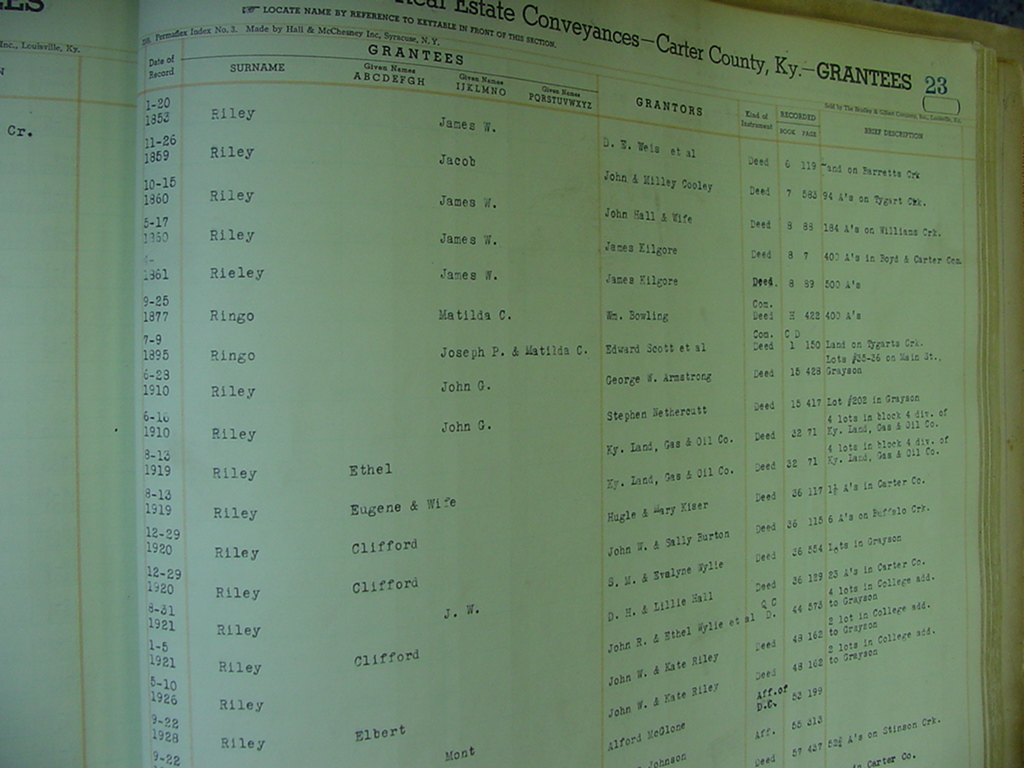 ES
Inc., Louisville, Ky.
N
Cr.
Real Estate Conveyances—Carter County, Ky.—GRANTEES 23
☞ LOCATE NAME BY REFERENCE TO KEYTABLE IN FRONT OF THIS SECTION.
Permaflex Index No. 3. Made by Hall & McChesney Inc, Syracuse, N. Y.
Sold by The Bradley & Gilbert Company, Inc., Louisville, Ky.
GRANTEES
Date of Record SURNAME Given Names ABCDEFGH Given Names IJKLMNO Given Names PQRSTUVWXYZ GRANTORS Kind of Instrument RECORDED BOOK PAGE BRIEF DESCRIPTION
1-20
1853 Riley James W. D. E. Weis et al Deed 6 119 Land on Barretts Crk
11-26
1859 Riley Jacob John & Milley Cooley Deed 7 583 94 A's on Tygart Crk.
10-15
1860 Riley James W. John Hall & Wife Deed 8 88 184 A's on Williams Crk.
5-17
1860 Riley James W. James Kilgore Deed 8 7 400 A's in Boyd & Carter Com.
1861 Rieley James W. James Kilgore Deed. 8 89 500 A's
9-25 Com.
1877 Ringo Matilda C. Wm. Bowling Deed H 422 400 A's
7-9 Com. C D
1895 Ringo Joseph P. & Matilda C. Edward Scott et al Deed 1 150 Land on Tygarts Crk.
6-28 Lots #35-36 on Main St.,
1910 Riley John G. George W. Armstrong Deed 15 428 Grayson
6-10
1910 Riley John G. Stephen Nethercutt Deed 15 417 Lot #202 in Grayson
8-13 4 lots in block 4 div. of
1919 Riley Ethel Ky. Land, Gas & Oil Co. Deed 32 71 Ky. Land, Gas & Oil Co.
8-13 4 lots in block 4 div. of
1919 Riley Eugene & Wife Ky. Land, Gas & Oil Co. Deed 32 71 Ky. Land, Gas & Oil Co.
12-29
1920 Riley Clifford Hugle & Mary Kiser Deed 36 117 1½ A's in Carter Co.
12-29
1920 Riley Clifford John W. & Sally Burton Deed 36 115 6 A's on Buffalo Crk.
8-31
1921 Riley J. W. S. M. & Evalyne Wylie Deed 36 554 Lots in Grayson
1-5
1921 Riley Clifford D. H. & Lillie Hall Deed 36 129 23 A's in Carter Co.
5-10 Q C 4 lots in College add.
1926 Riley John R. & Ethel Wylie et al D. 44 573 to Grayson
9-22 2 lot in College add.
1928 Riley Elbert John W. & Kate Riley Deed 48 162 to Grayson
9-22 2 lots in College add.
Mont John W. & Kate Riley Deed 48 162 to Grayson
Aff. of
Alford McGlone D.C. 53 199
Johnson Aff. 55 313
Deed 57 437 A's on Stinson Crk.
in Carter Co.